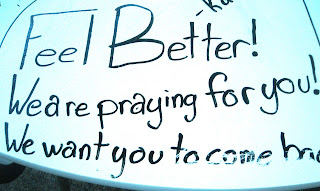 Feel Better!
We are praying for you!
We want you to come